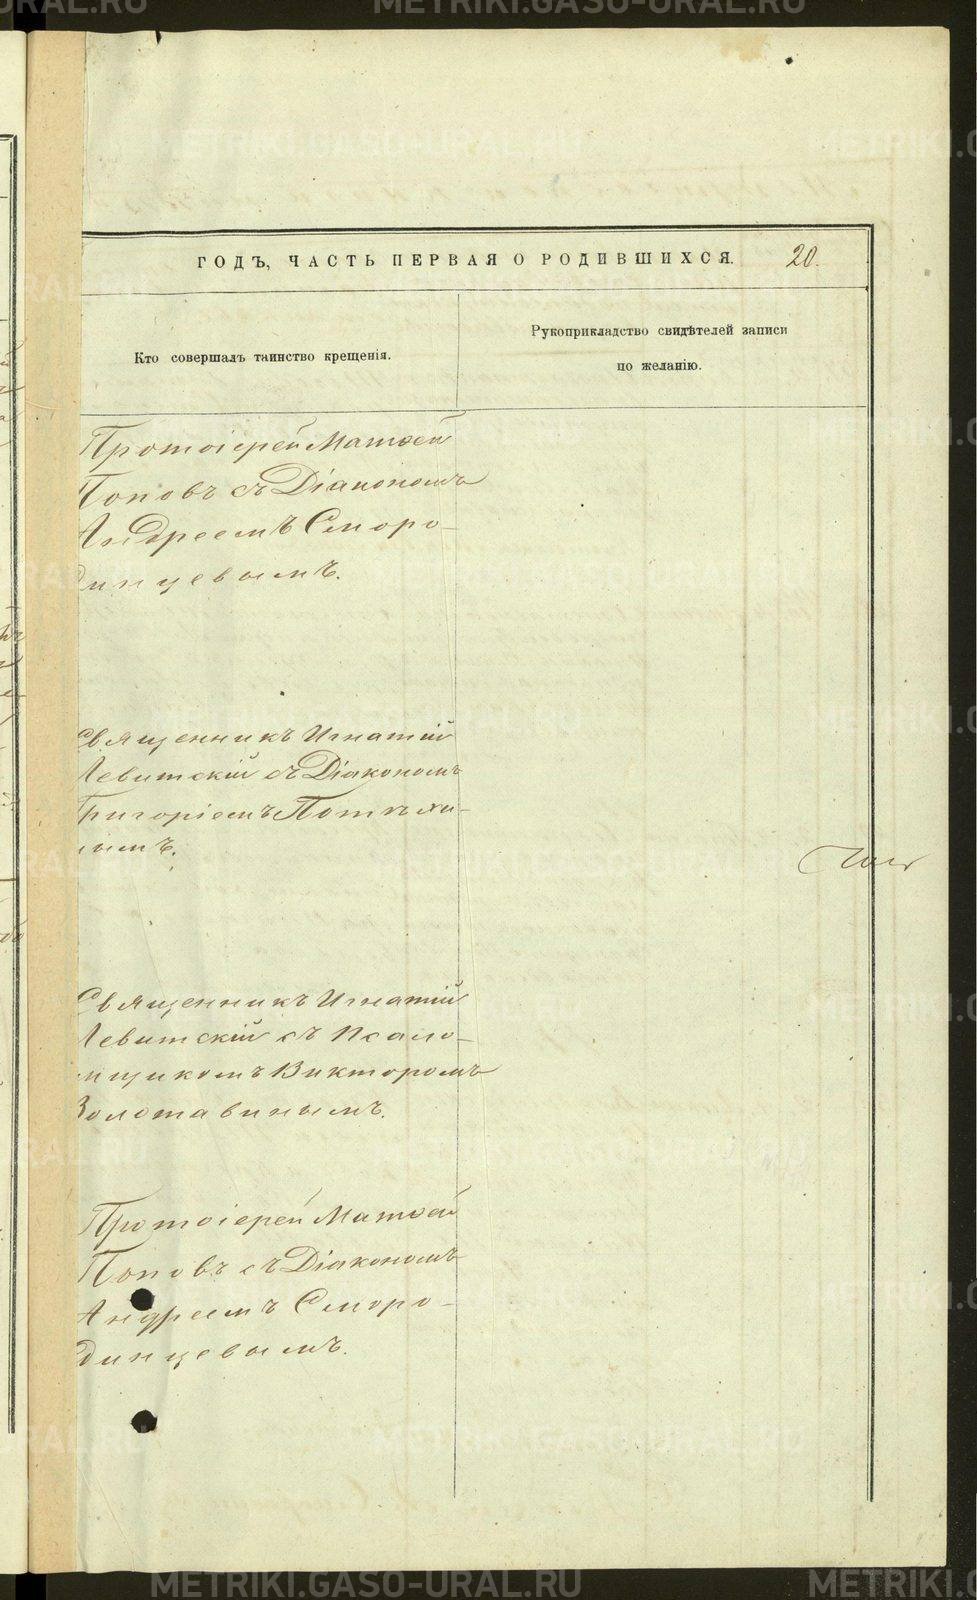 ГОДЪ, ЧАСТЬ ПЕРВАЯ О РОДИВШИХСЯ. 20.
Кто совершалъ таинство крещенія.
Рукоприкладство свидѣтелей записи
по желанію.
Протоіерей Матѳей
Поповъ съ Діакономъ
Андреемъ Сморо-
динцевымъ.
Священникъ Игнатій
Левитскій съ Діакономъ
Григоріемъ Потѣхи-
нымъ.
Священникъ Игнатій
Левитскій съ Псало-
мщикомъ Викторомъ
Золотавинымъ.
Протоіерей Матѳей
Поповъ съ Діакономъ
Андреемъ Сморо-
динцевымъ.
METRIKI.GASO-URAL.RU